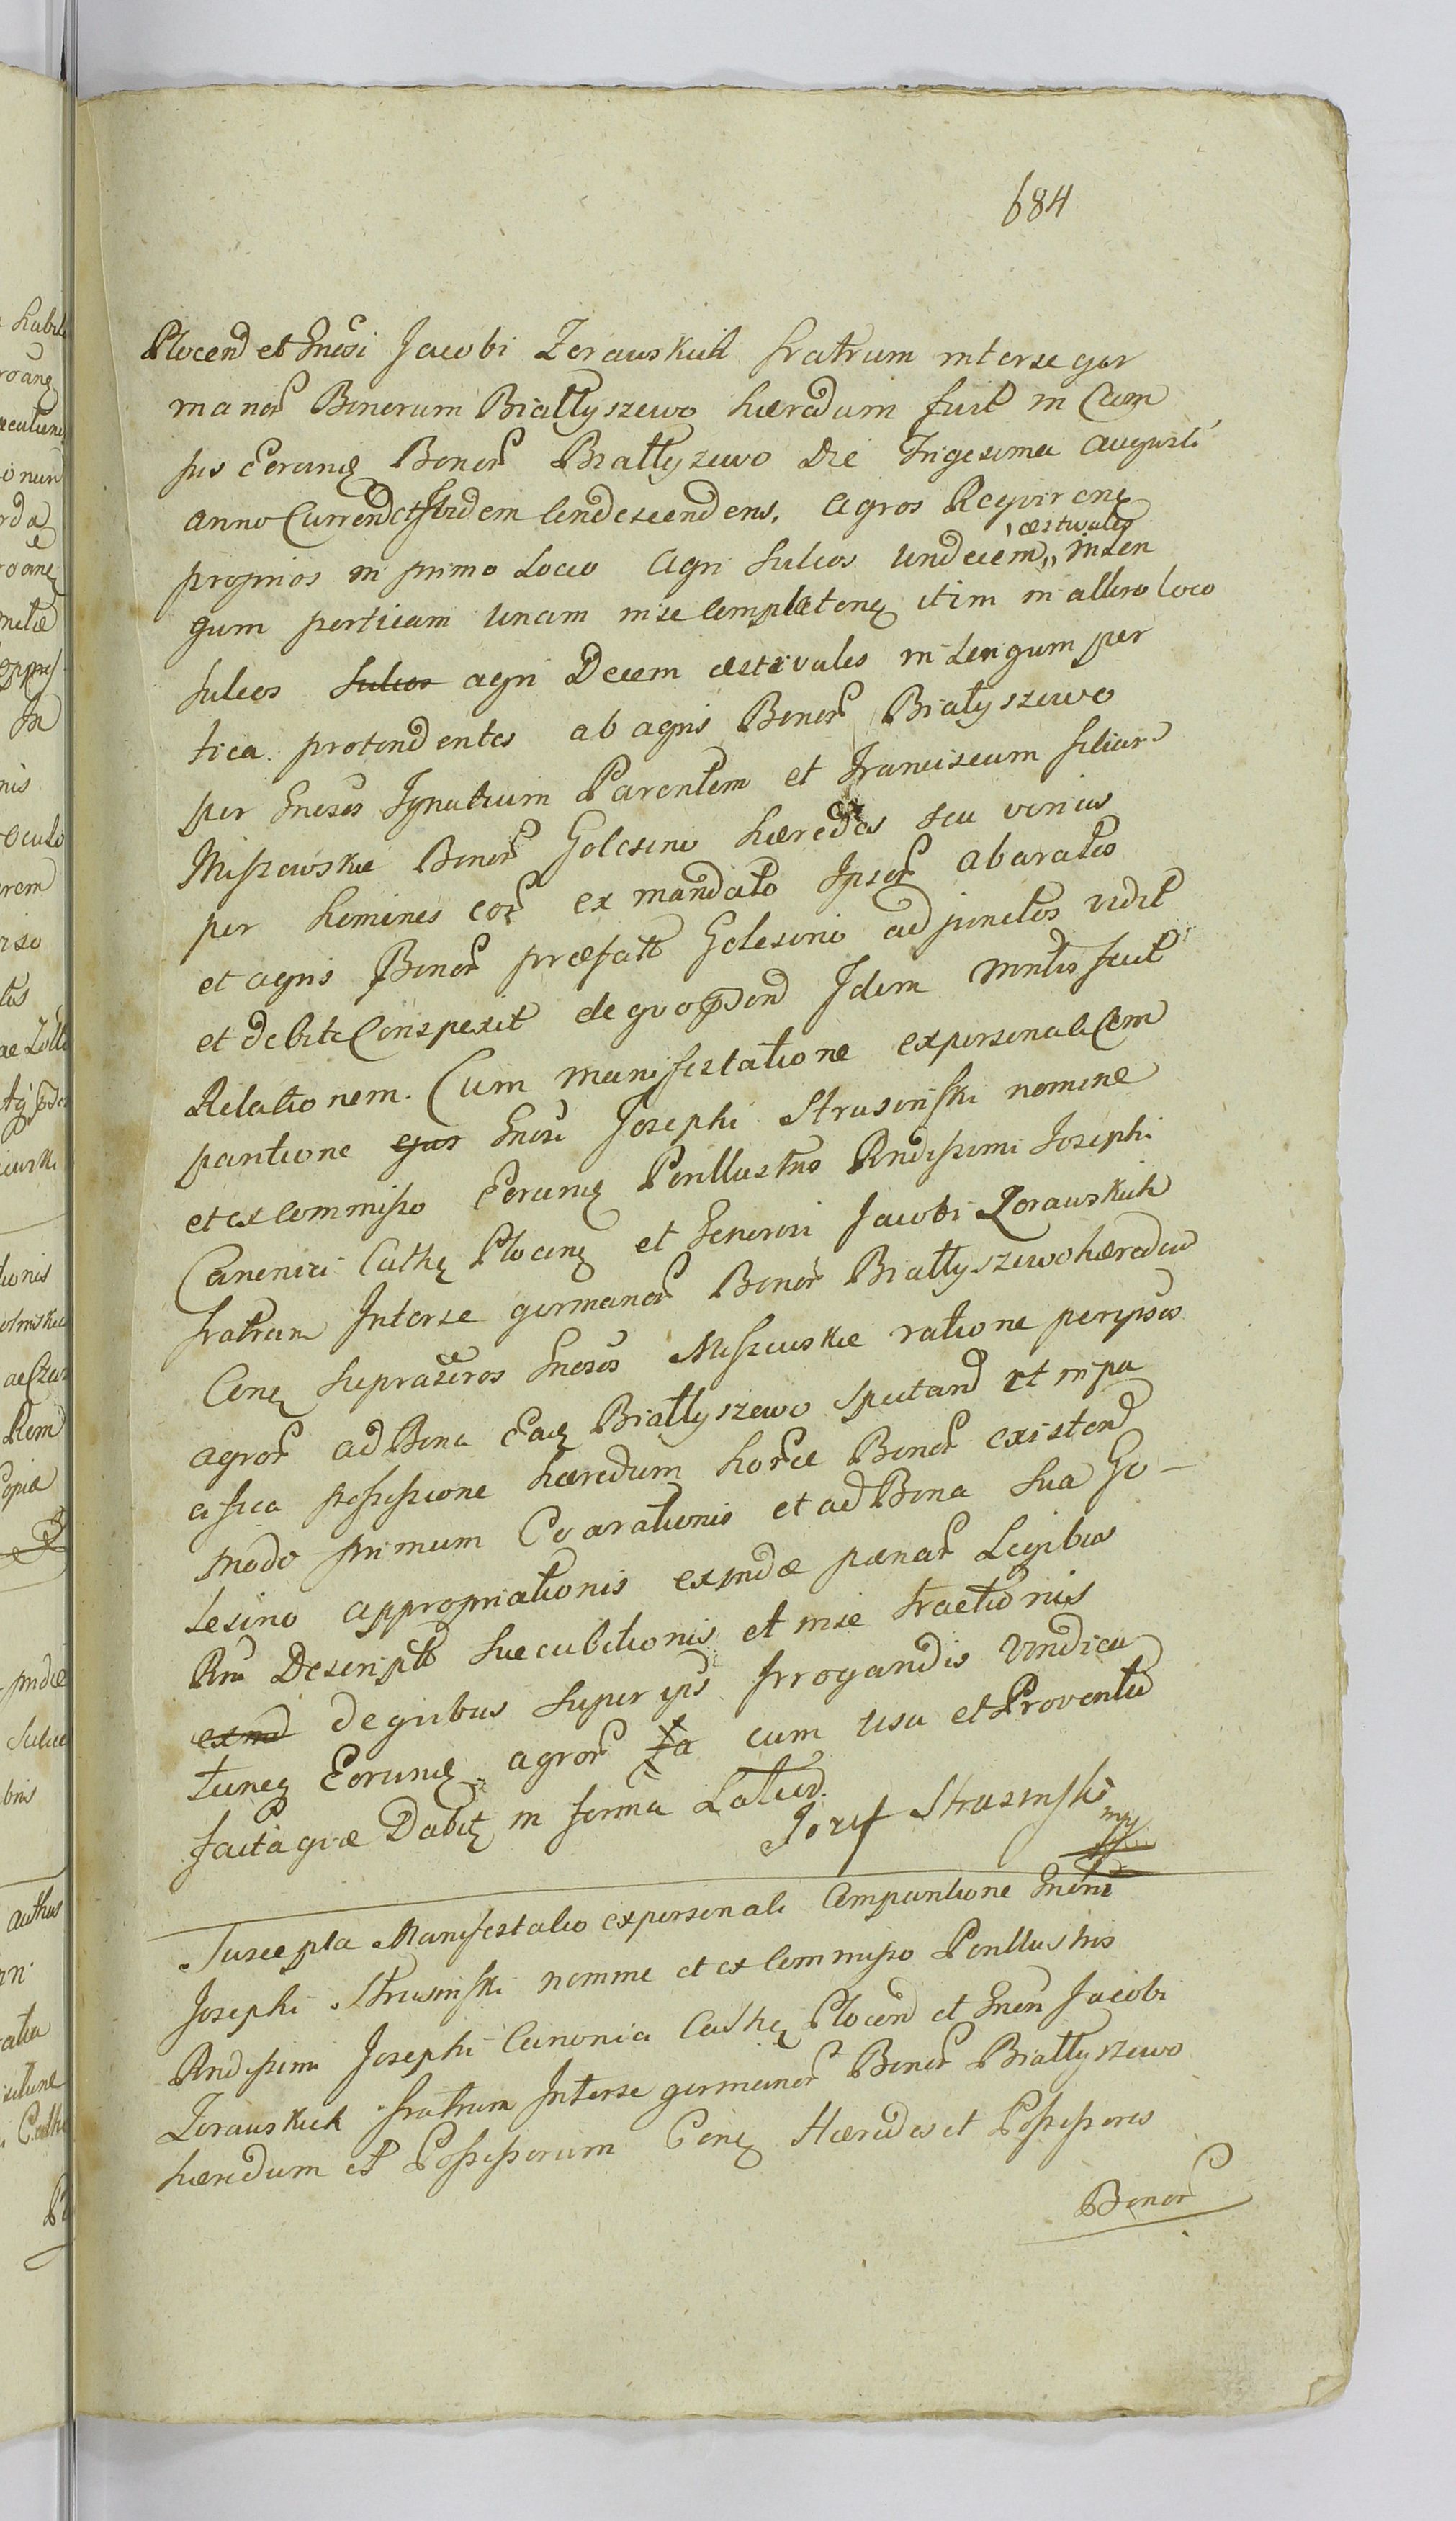 684
Plocend et Gnosi Jacobi Zorawskich fratrum inter se ger
manor Bonorum Białłyszewo hæredum fuit in Cam
pis Eorundę Bonor Białłyszewo Die Trigesima Augusti
anno Currend et Ibidem Condescendens. Agros
proprios in primo Loco Agri Sulcos Undecem æstivales in Lon
gum perticam Unam in se Complectenę itim in altero Loco
Sulcos Sulcos agri Decem æstivales in Longum per
tica protendentes ab agris Bonor Białyszewo
per Gnosos Ignatium Parentem et Franciscum filium
Miszewskie Bonor Golesino hæredes seu verius
per homines eor ex mandato Ipsor abaratos
et agris Bonor præfatt Golesino adjunctos vidit
et debite Conspexit de quo Idem Mntlis fecit
Relationem. Cum manifestatione ex personali Com
paritione ejus Gnosi Josephi Strusinski nomine
et ex Commisso Eorundę Perillustris Rndissimi Josephi
Canonici Cathę Plocenę et Generosi Jacobi Zorawskich
fratrum Inter se germanor Bonor Białłyszewo hæredum
Conę supra Gnosos Miszewskie ratione per ipsos
agror ad Bona Eadę Białłyszewo Spectand et in pa
cifica possessione hæredum horce Bonor existend
modo primum Coarationis et ad Bona Sua Go-
lesino appropriationis exindæ pænar Legibus
Rni Descript Succubitionis et in se tractionis
exind de quibus super ipis Irrogandis Vindica
tunę Eorundę agror cum usu et Proventu
facta quæ Dabitę in forma Latiori.
Jozef Strusinski mpp
Suscepta Manifestatio ex personali Comparitione Gnosi
Josephi Strusinski nomine et ex Commisso Perillustris
Rndissimi Josephi Canonici Cathę Plocend et Gnosi Jacobi
Zorawskich fratrum Inter se germanor Bonor Białłyszewo
hæredum et Possessorum Conę Hæredes et Possessores
Bonor